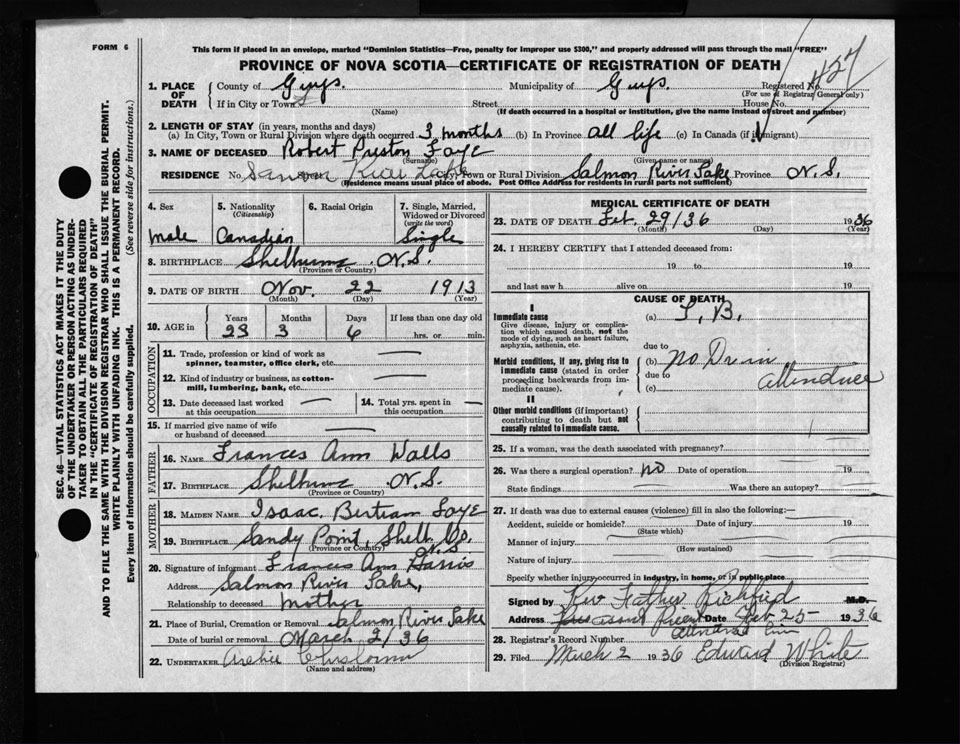 FORM 6
This form if placed in an envelope, marked "Dominion Statistics—Free, penalty for improper use $300," and properly addressed will pass through the mail "FREE"
PROVINCE OF NOVA SCOTIA—CERTIFICATE OF REGISTRATION OF DEATH
SEC. 46—VITAL STATISTICS ACT MAKES IT THE DUTY
OF THE UNDERTAKER OR PERSON ACTING AS UNDER-
TAKER TO OBTAIN ALL THE PARTICULARS REQUIRED
IN THE "CERTIFICATE OF REGISTRATION OF DEATH"
AND TO FILE THE SAME WITH THE DIVISION REGISTRAR WHO SHALL ISSUE THE BURIAL PERMIT.
WRITE PLAINLY WITH UNFADING INK. THIS IS A PERMANENT RECORD.
Every item of information should be carefully supplied. (See reverse side for instructions.)
1. PLACE OF DEATH County of Guys. Municipality of Guys. Registered No. 427
(For use of Registrar General only)
If in City or Town Street House No.
(Name) (If death occurred in a hospital or institution, give the name instead of street and number)
2. LENGTH OF STAY (in years, months and days)
(a) In City, Town or Rural Division where death occurred 3 months (b) In Province all life (c) In Canada (if immigrant)
3. NAME OF DECEASED Robert Preston Faye
(Surname) (Given name or names)
RESIDENCE No. Street City, Town or Rural Division Salmon River Lake Province N.S.
(Residence means usual place of abode. Post Office Address for residents in rural parts not sufficient)
4. Sex male
5. Nationality (Citizenship) Canadian
6. Racial Origin
7. Single, Married, Widowed or Divorced (write the word) Single
8. BIRTHPLACE Shelburne N.S.
(Province or Country)
9. DATE OF BIRTH Nov. 22 1913
(Month) (Day) (Year)
10. AGE in Years 23 Months 3 Days 6 If less than one day old hrs. or min.
OCCUPATION
11. Trade, profession or kind of work as spinner, teamster, office clerk, etc. —
12. Kind of industry or business, as cotton-mill, lumbering, bank, etc. —
13. Date deceased last worked at this occupation — 14. Total yrs. spent in this occupation —
15. If married give name of wife or husband of deceased —
FATHER
16. NAME Frances Ann Walls
17. BIRTHPLACE Shelburne N.S.
(Province or Country)
MOTHER
18. MAIDEN NAME Isaac Bertram Faye
19. BIRTHPLACE Sandy Point, Shelb Co. N.S
(Province or Country)
20. Signature of informant Frances Ann Harris
Address Salmon River Lake,
Relationship to deceased mother
21. Place of Burial, Cremation or Removal Salmon River Lake
Date of burial or removal March 2/36
22. UNDERTAKER Archie Chisholm
(Name and address)
MEDICAL CERTIFICATE OF DEATH
23. DATE OF DEATH Feb. 29/36 1936
(Month) (Day) (Year)
24. I HEREBY CERTIFY that I attended deceased from:
19 to 19
and last saw h alive on 19
CAUSE OF DEATH
I
Immediate cause
Give disease, injury or complication which caused death, not the mode of dying, such as heart failure, asphyxia, asthenia, etc.
(a) T.B.
due to
Morbid conditions, if any, giving rise to immediate cause (stated in order proceeding backwards from immediate cause).
(b) no
due to
(c)
II
Other morbid conditions (if important) contributing to death but not causally related to immediate cause.
25. If a woman, was the death associated with pregnancy?
26. Was there a surgical operation? no Date of operation 19
State findings Was there an autopsy?
27. If death was due to external causes (violence) fill in also the following:—
Accident, suicide or homicide? Date of injury 19
(State which)
Manner of injury
(How sustained)
Nature of injury
Specify whether injury occurred in industry, in home, or in public place
Signed by Rev Father M.D.
Address Date Feb 25- 1936
28. Registrar's Record Number
29. Filed March 2 1936 Edward White
(Division Registrar)